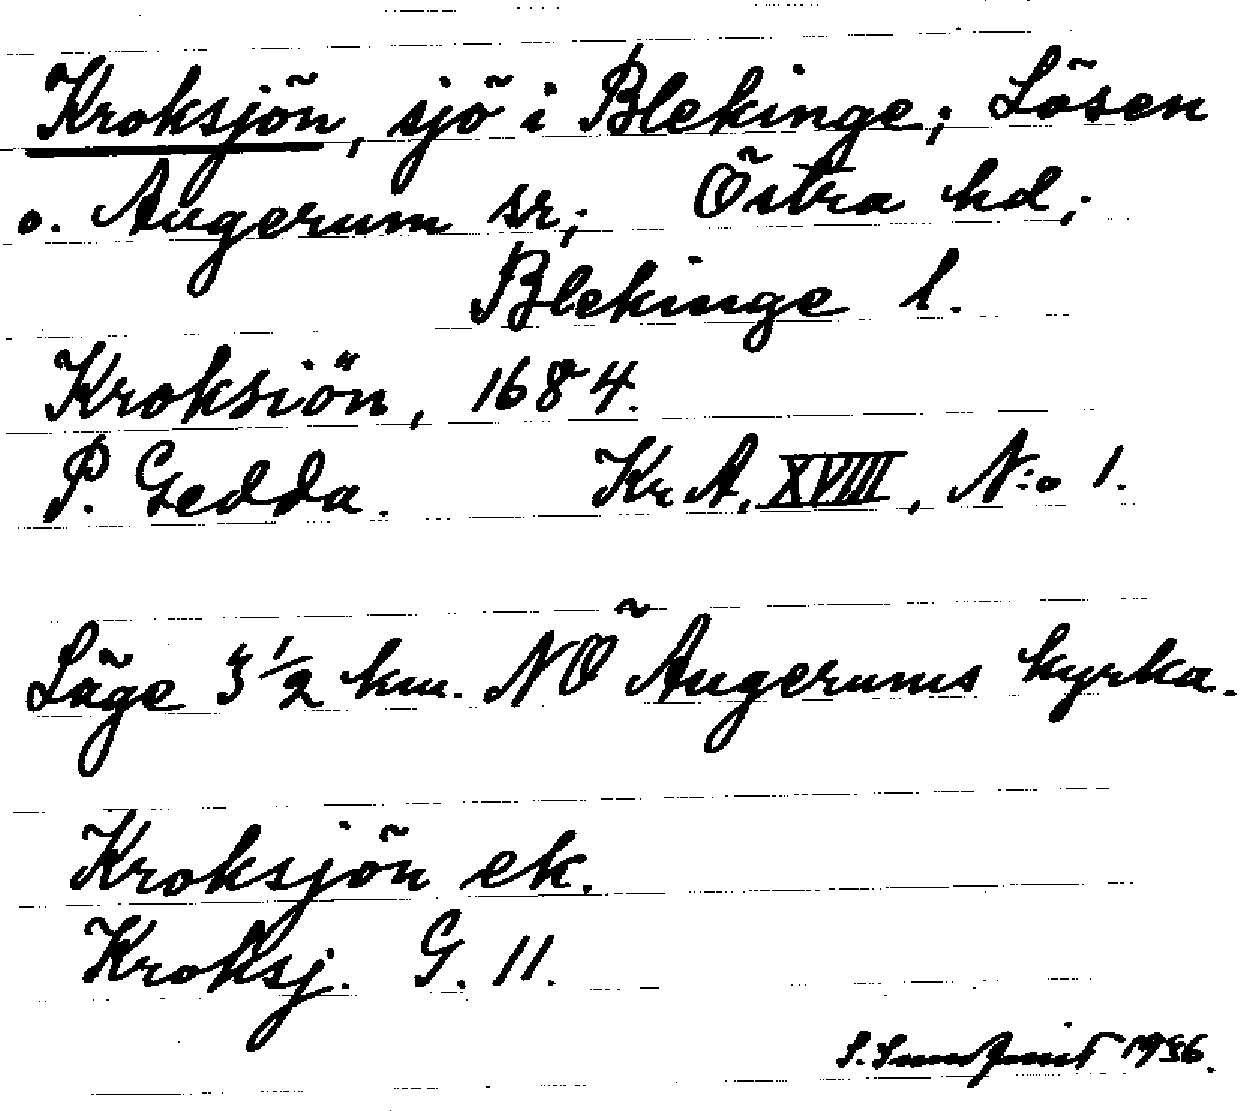 Kroksjön, sjö i Blekinge; Lösen
o. Augerum sr; Östra hd;
Blekinge l.
Kroksiön, 1684.
P. Gedda. Kr A, XVIII, N:o 1.
Läge 3 1/2 km. NÖ Augerums kyrka.
Kroksjön ek.
Kroksj. G. 11.
S. 1936.